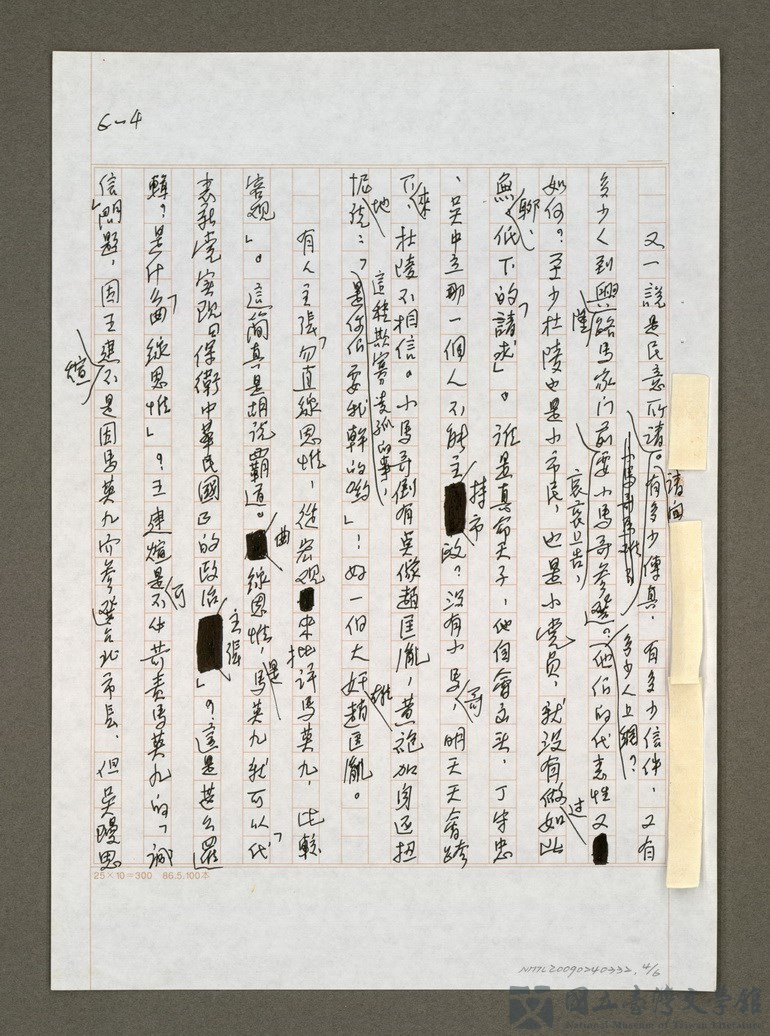 6—4
又一說是民意所請。請問有多少傳真，有多少信件，又有
多少人上網？
多少人到興隆路馬家门前哀哀上告，要小馬哥参選？他们的代表性又
如何？至少杜陵也是小市民，也是小党员，就没有做过如此
無聊、低下的「請求」。誰是真命天子，他自會出头，丁守忠
、吴中立那一個人不能主持市政？没有小馬哥，明天天會跨
下來，杜陵不相信。小馬哥倒有吴像趙匡胤，黄袍加身还扭
怩地說：「是你们要我幹的喲」！這种欺寡凌孤的事，好一個大奸雄趙匡胤。
有人主張「勿直線思惟，從宏观来批评馬英九，比較
客观」。這简真是胡說霸道。曲線思惟，是馬英九就可以「代
表新党實現日保衛中華民國的政治主張」？這是甚么邏
輯？是什么「曲線思惟」？王建煊是不可什苛責馬英九的「誠
信」問題，因王建煊不是因馬英九不参選台北市長，但吴嫚思
25×10=300 86.5.100本
NMTL20090240332, 4/6
國立臺灣文學館
National Museum of Taiwan Literature